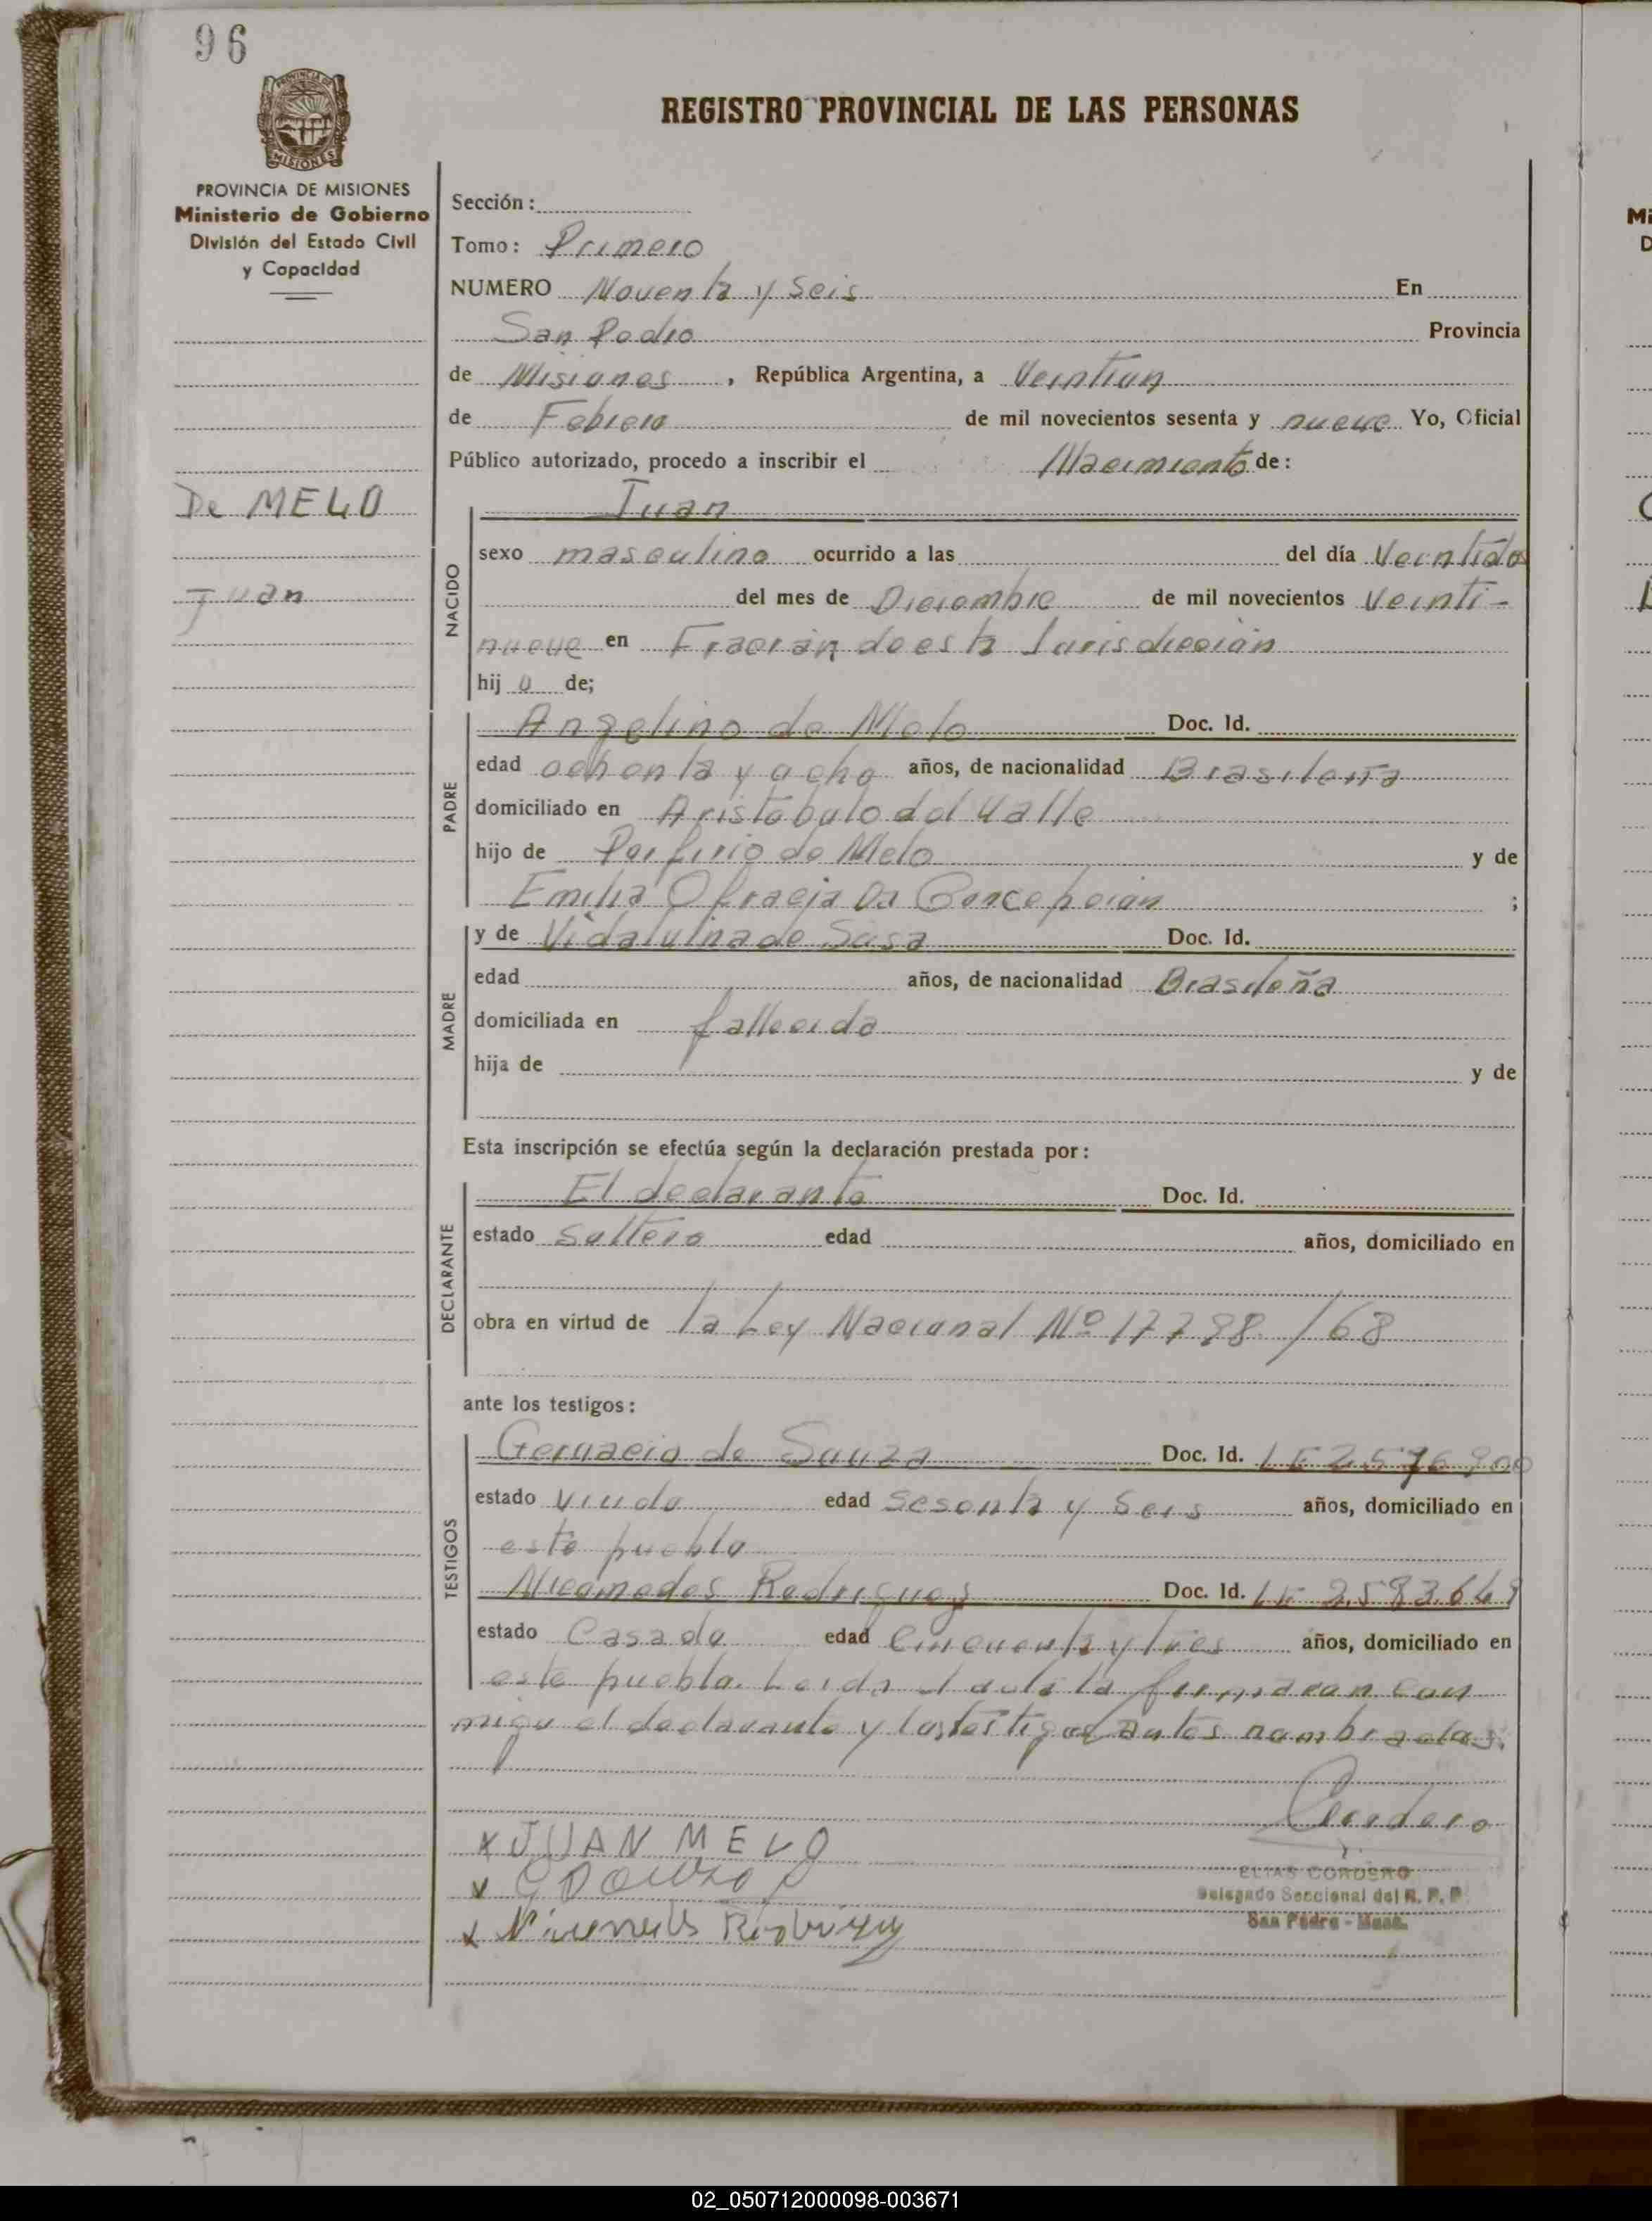 96
PROVINCIA DE MISIONES
Ministerio de Gobierno
División del Estado Civil
y Capacidad
De MELO
Juan
REGISTRO PROVINCIAL DE LAS PERSONAS
Sección:
Tomo: Primero
NUMERO Noventa y Seis En
San Pedro Provincia
de Misiones, República Argentina, a Veintiun
de Febrero de mil novecientos sesenta y nueve Yo, Oficial
Público autorizado, procedo a inscribir el Nacimiento de:
Juan
NACIDO
sexo masculino ocurrido a las del día Veintidos
del mes de Diciembre de mil novecientos Veinti-
nueve en Fracrán de esta Jurisdicción
hij o de;
PADRE
Angelino de Melo Doc. Id.
edad ochenta y ocho años, de nacionalidad Brasileña
domiciliado en Aristobulo del Valle
hijo de Porfirio de Melo y de
Emilia Da Concepción ;
MADRE
y de de Sosa Doc. Id.
edad años, de nacionalidad Brasileña
domiciliada en fallecida
hija de y de
Esta inscripción se efectúa según la declaración prestada por:
DECLARANTE
El declarante Doc. Id.
estado soltero edad años, domiciliado en
obra en virtud de la Ley Nacional Nº 17798 /68
ante los testigos:
TESTIGOS
Gervacio de Souza Doc. Id. LE 2576900
estado viudo edad Sesenta y Seis años, domiciliado en
este pueblo
Nicomedes Rodriguez Doc. Id. LE 2.583.649
estado Casado edad Cincuenta y tres años, domiciliado en
este pueblo. Leida el acta la firmaran con
migo el declarante y los testigos antes nombrados.
Cordero
x JUAN MELO
x
x Rodriguez
ELIAS CORDERO
Delegado Seccional del R. P. P.
San Pedro - Mnes.
02_050712000098-003671